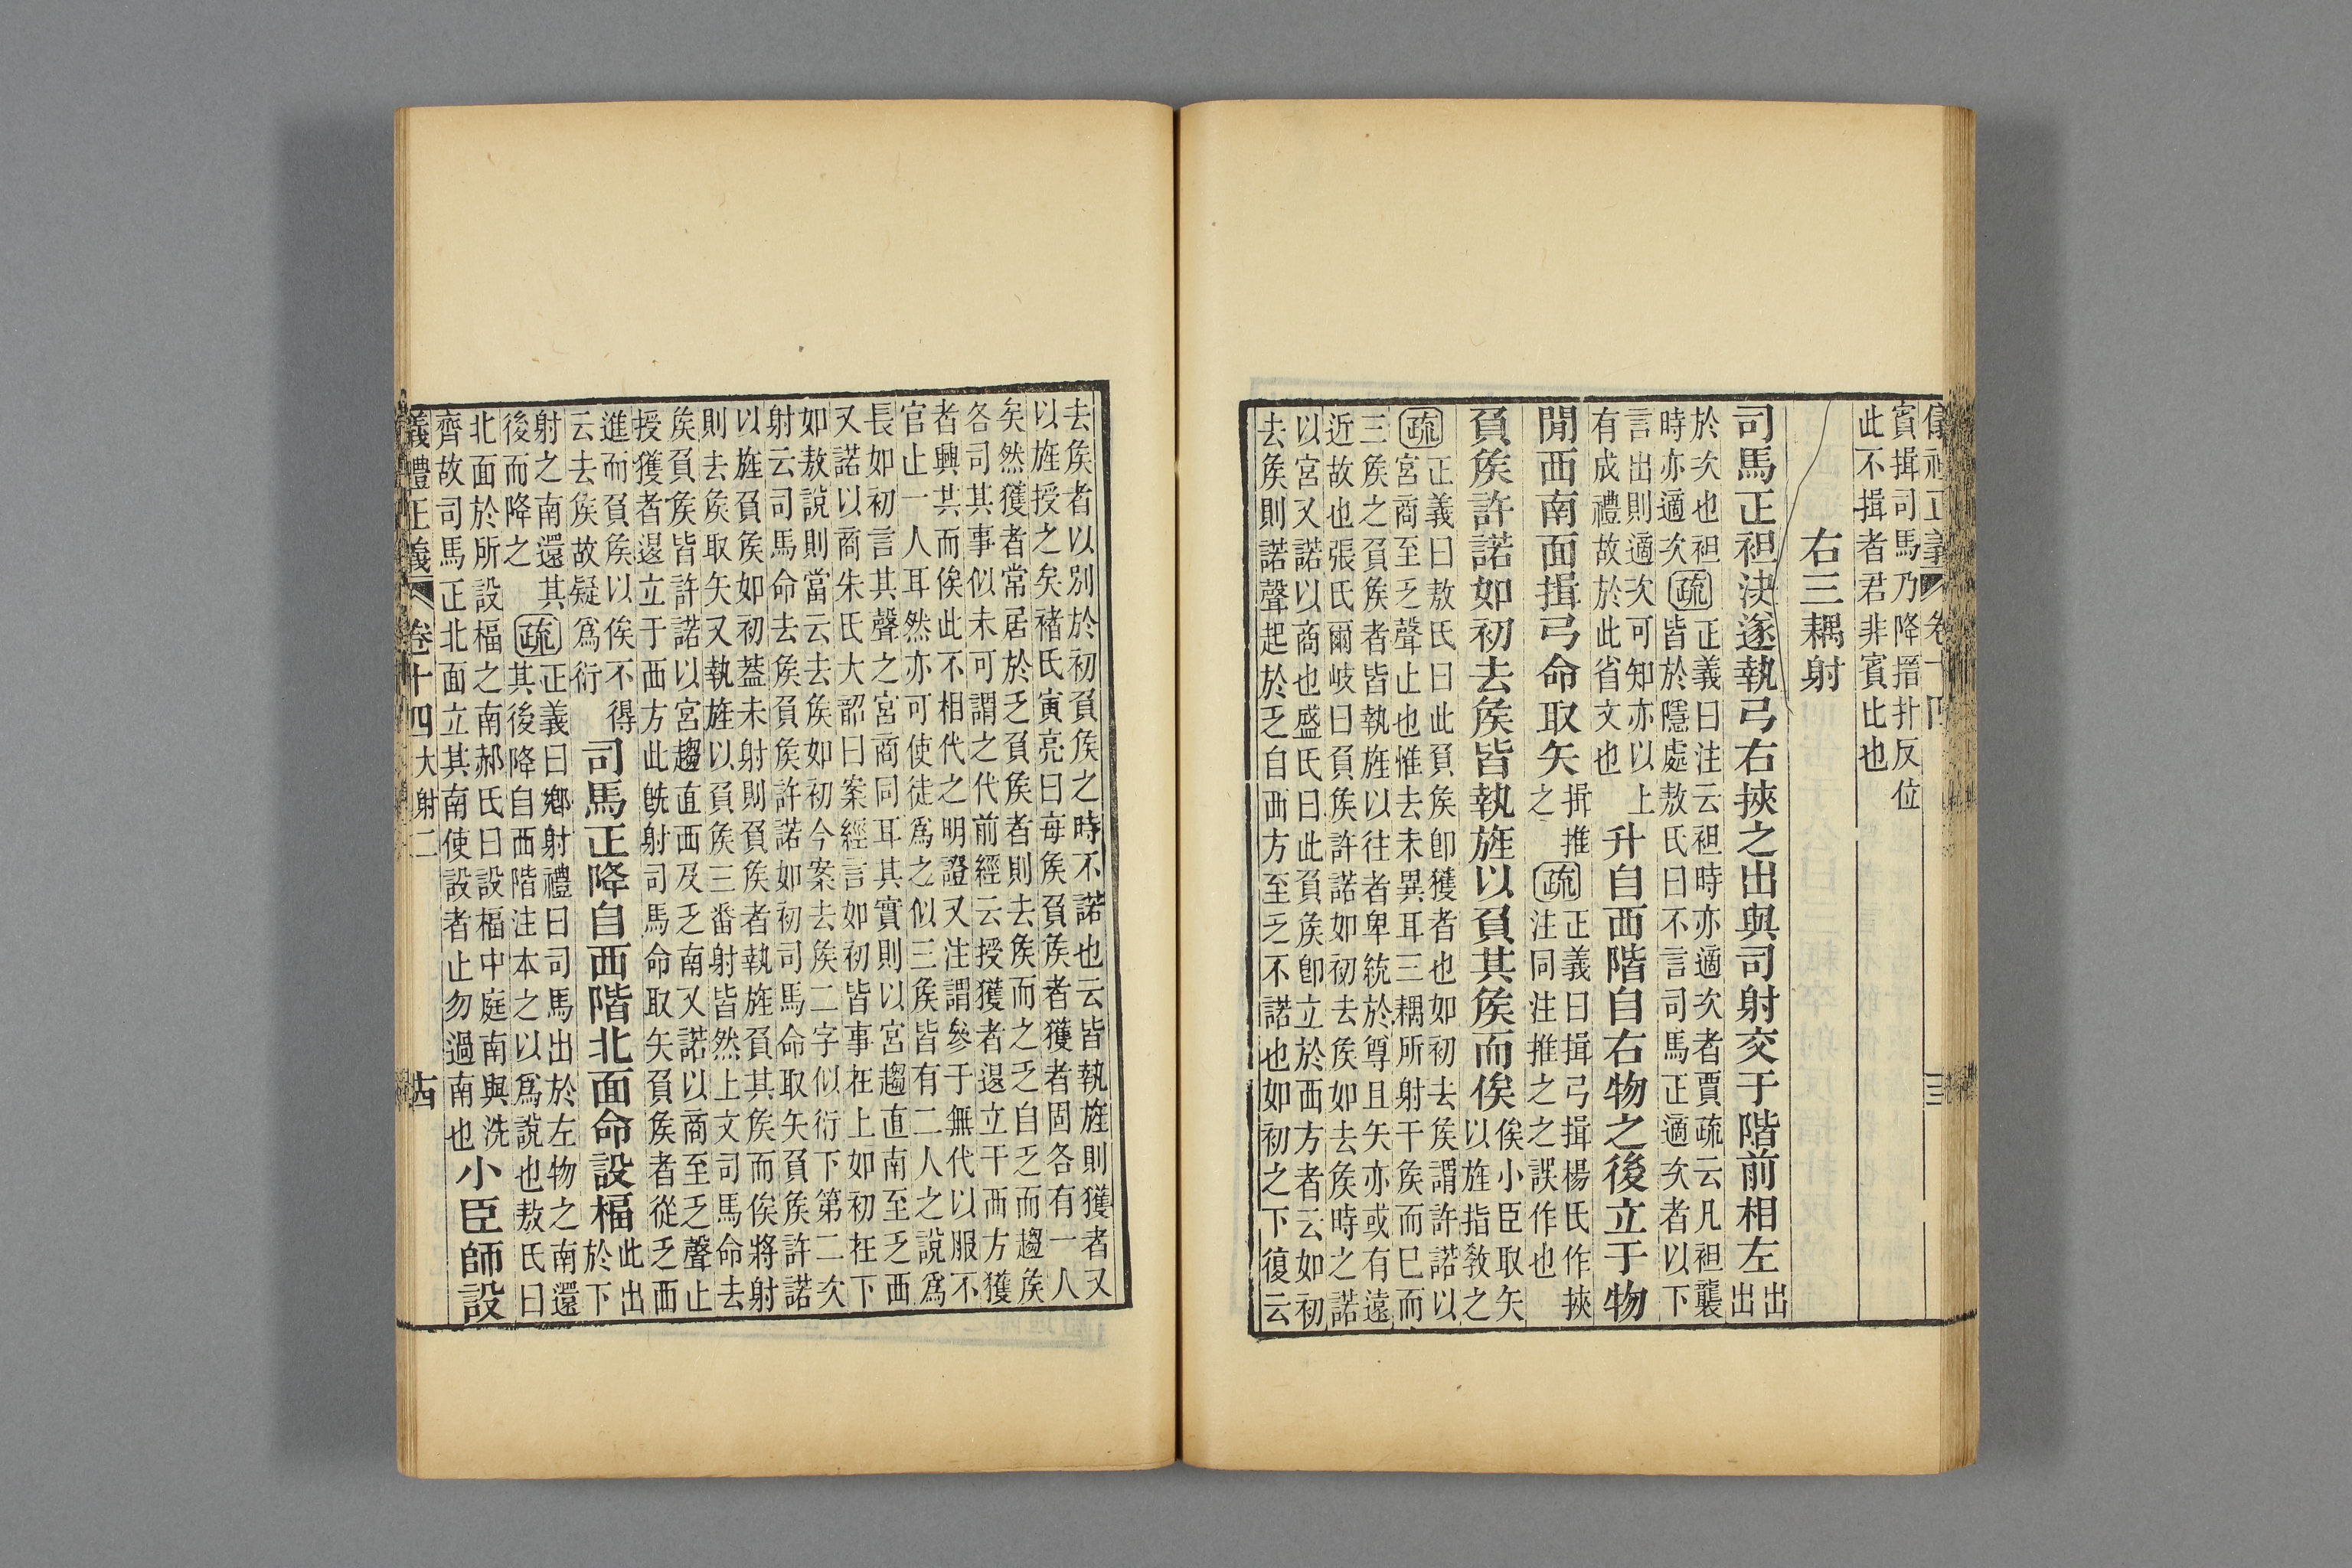 賓揖司馬乃降搢扑反位
此不揖者君非賓比也
右三耦射
司馬正袒決遂執弓右挾之出與司射交于階前相左
出
出
於次也袒疏正義曰注云袒時亦適次者賈疏云凡袒襲
時亦適次皆於隱處敖氏曰不言司馬正適次者以下
言出則適次可知亦以上
有成禮故於此省文也
升自西階自右物之後立于物
閒西南面揖弓命取矢
揖推
之
疏
正義曰揖弓揖楊氏作挾
注同注推之之誤作也
負矦許諾如初去矦皆執旌以負其矦而俟
俟小臣取矢
以旌指教之
疏
正義曰敖氏曰此負矦卽獲者也如初去矦謂許諾以
宮商至乏聲止也惟去未異耳三耦所射干矦而巳而
三矦之負矦者皆執旌以往者卑統於尊且矢亦或有遠
近故也張氏爾岐曰負矦許諾如初去矦如去矦時之諾
以宮又諾以商也盛氏曰此負矦卽立於西方者云如初
去矦則諾聲起於乏自西方至乏不諾也如初之下復云
去矦者以別於初負矦之時不諾也云皆執旌則獲者又
以旌授之矣褚氏寅亮曰每矦負矦者獲者固各有一人
矣然獲者常居於乏負矦者則去矦而之乏自乏而趨矦
各司其事似未可謂之代前經云授獲者退立于西方獲
者興共而俟此不相代之明證又注謂參于無代以服不
官止一人耳然亦可使徒爲之似三矦皆有二人之說爲
長如初言其聲之宮商同耳其實則以宮趨直南至乏西
又諾以商朱氏大韶曰案經言如初皆事在上如初在下
如敖說則當云去矦如初今案去矦二字似衍下第二次
射云司馬命去矦負矦許諾如初司馬命取矢負矦許諾
以旌負矦如初葢未射則負矦者執旌負其矦而俟將射
則去矦取矢又執旌以負矦三番射皆然上文司馬命去
矦負矦皆許諾以宮趨直西及乏南又諾以商至乏聲止
授獲者退立于西方此旣射司馬命取矢負矦者從乏西
進而負矦以俟不得
云去矦故疑爲衍
司馬正降自西階北面命設楅
此出
於下
射之南還其疏正義曰鄉射禮曰司馬出於左物之南還
後而降之其後降自西階注本之以爲說也敖氏曰
北面於所設楅之南郝氏曰設楅中庭南與洗
齊故司馬正北面立其南使設者止勿過南也
小臣師設
儀禮正義 卷十四 大射二 十四